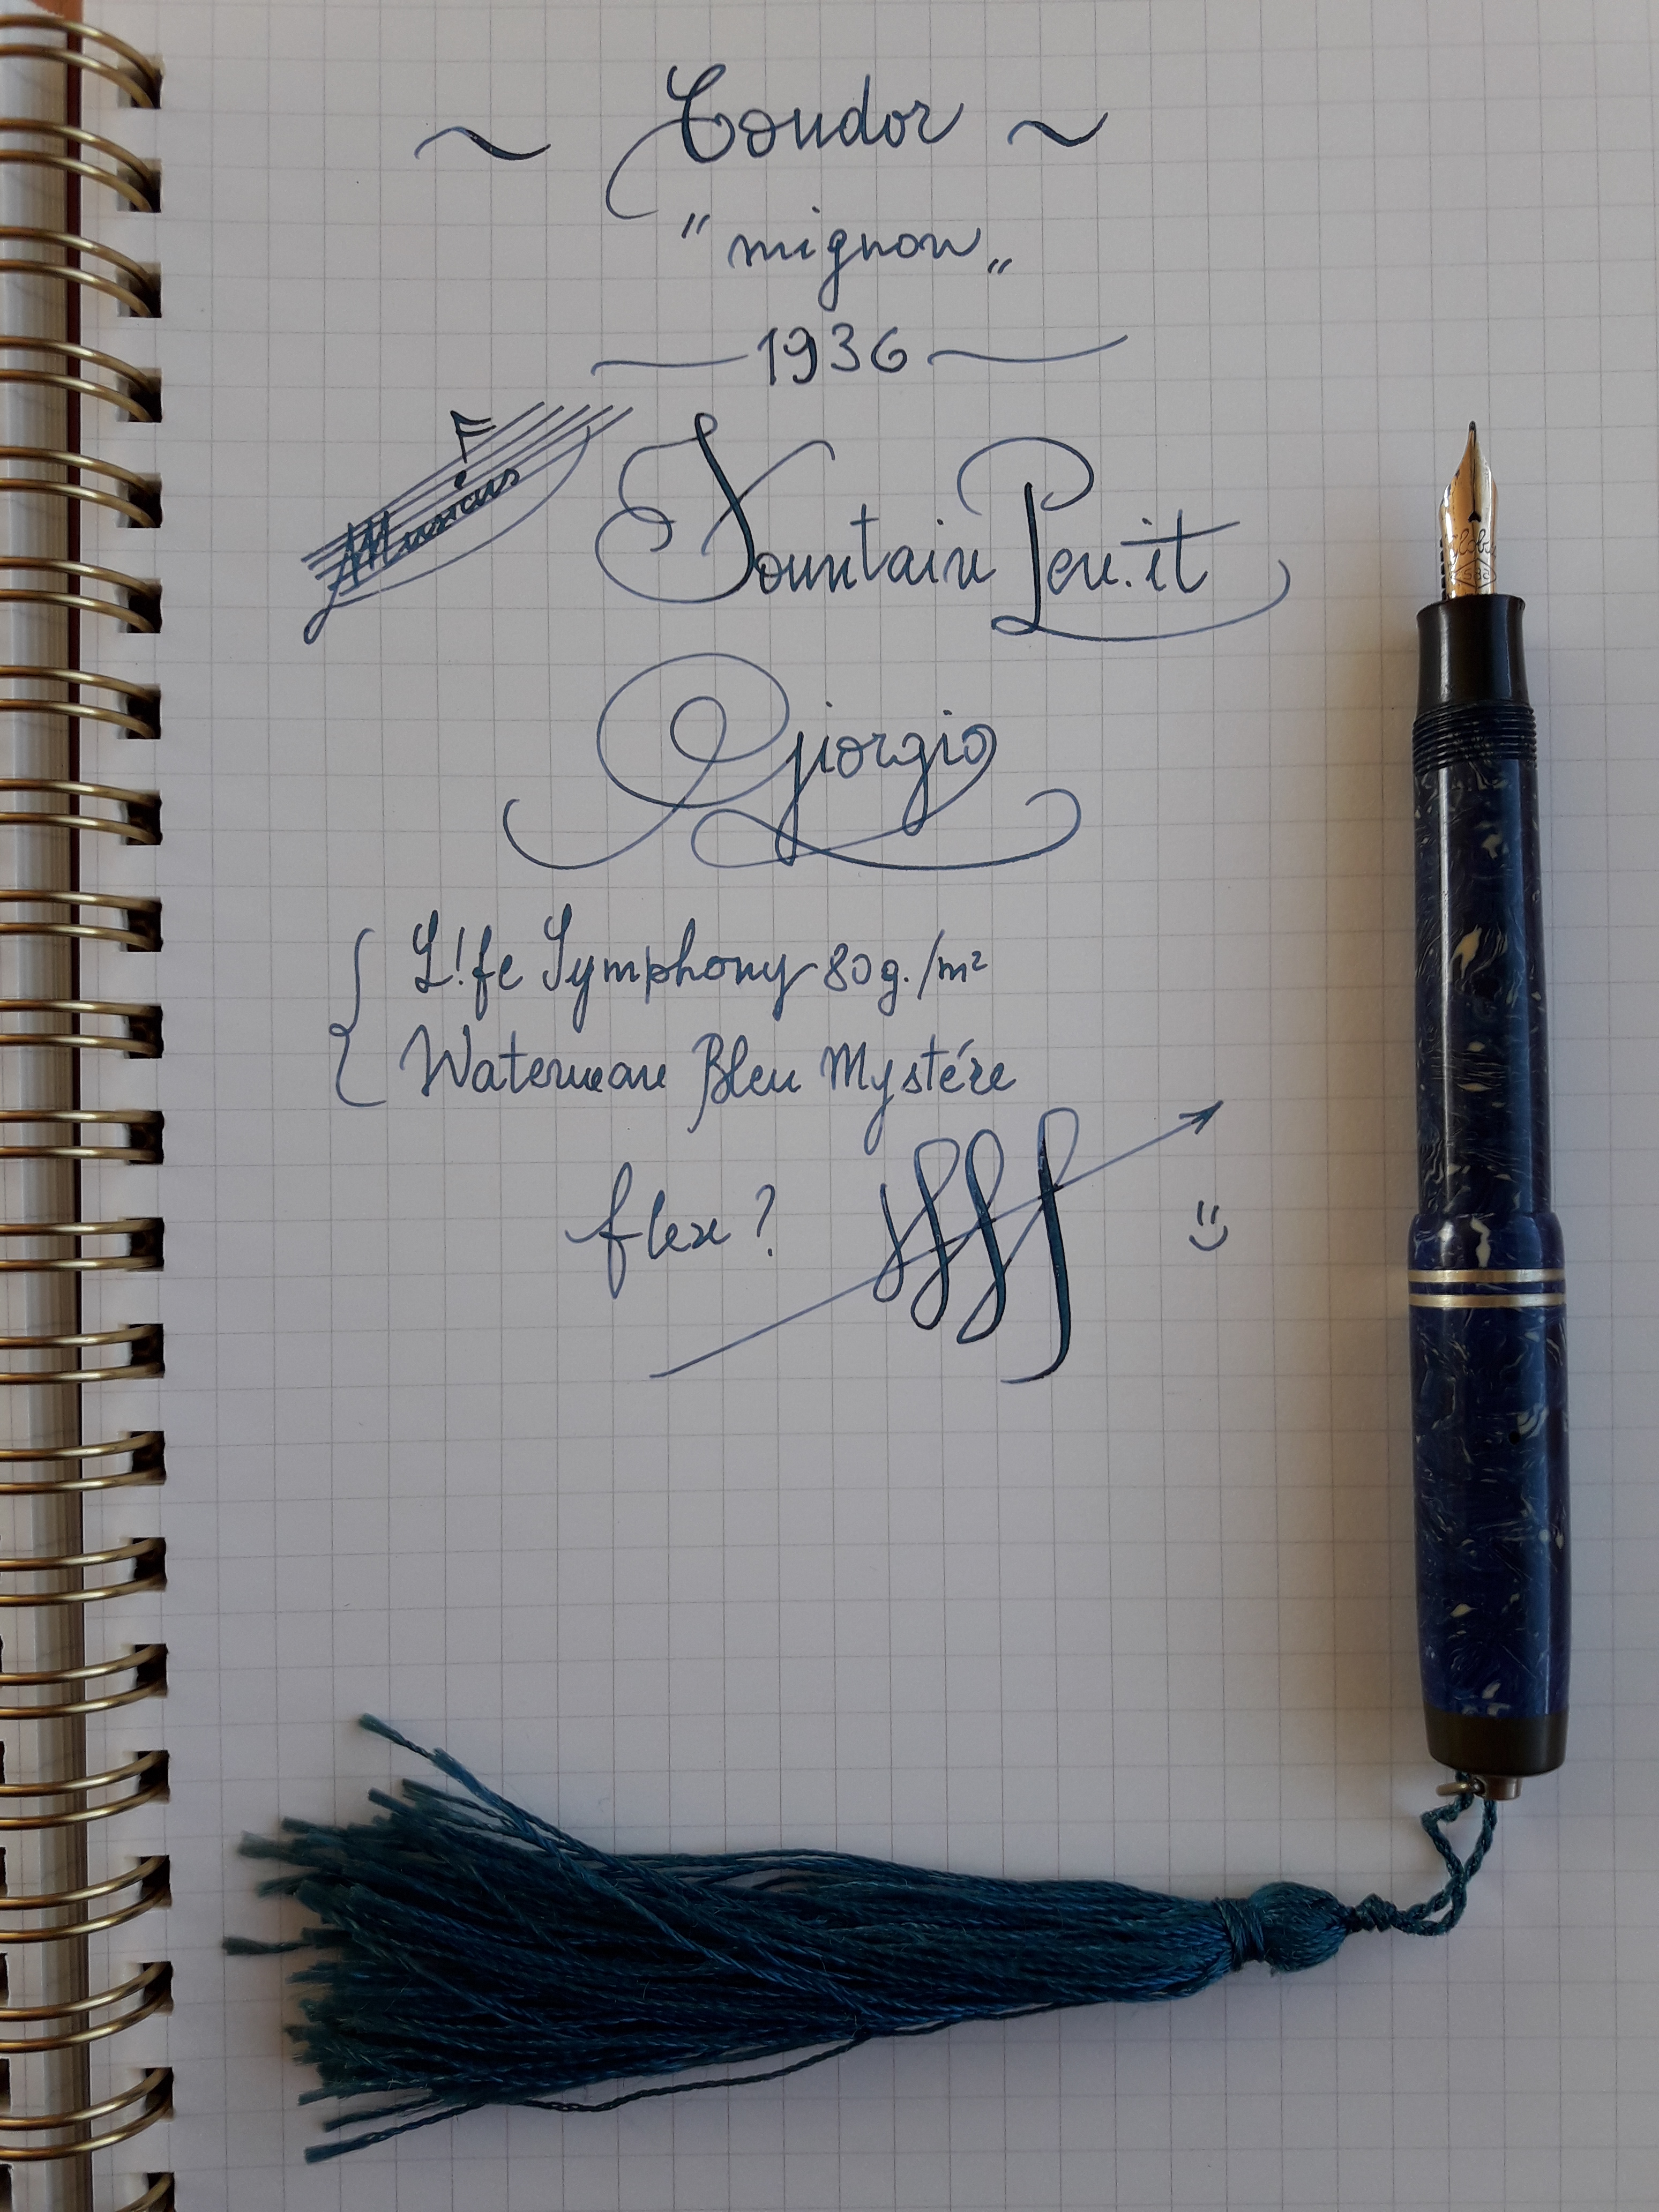 ~ Condor ~
"mignon„
1936
Musicus
Fountain Pen.it
Giorgio
L!fe Symphony 80g./m²
Waterman Bleu Mystére
flex?